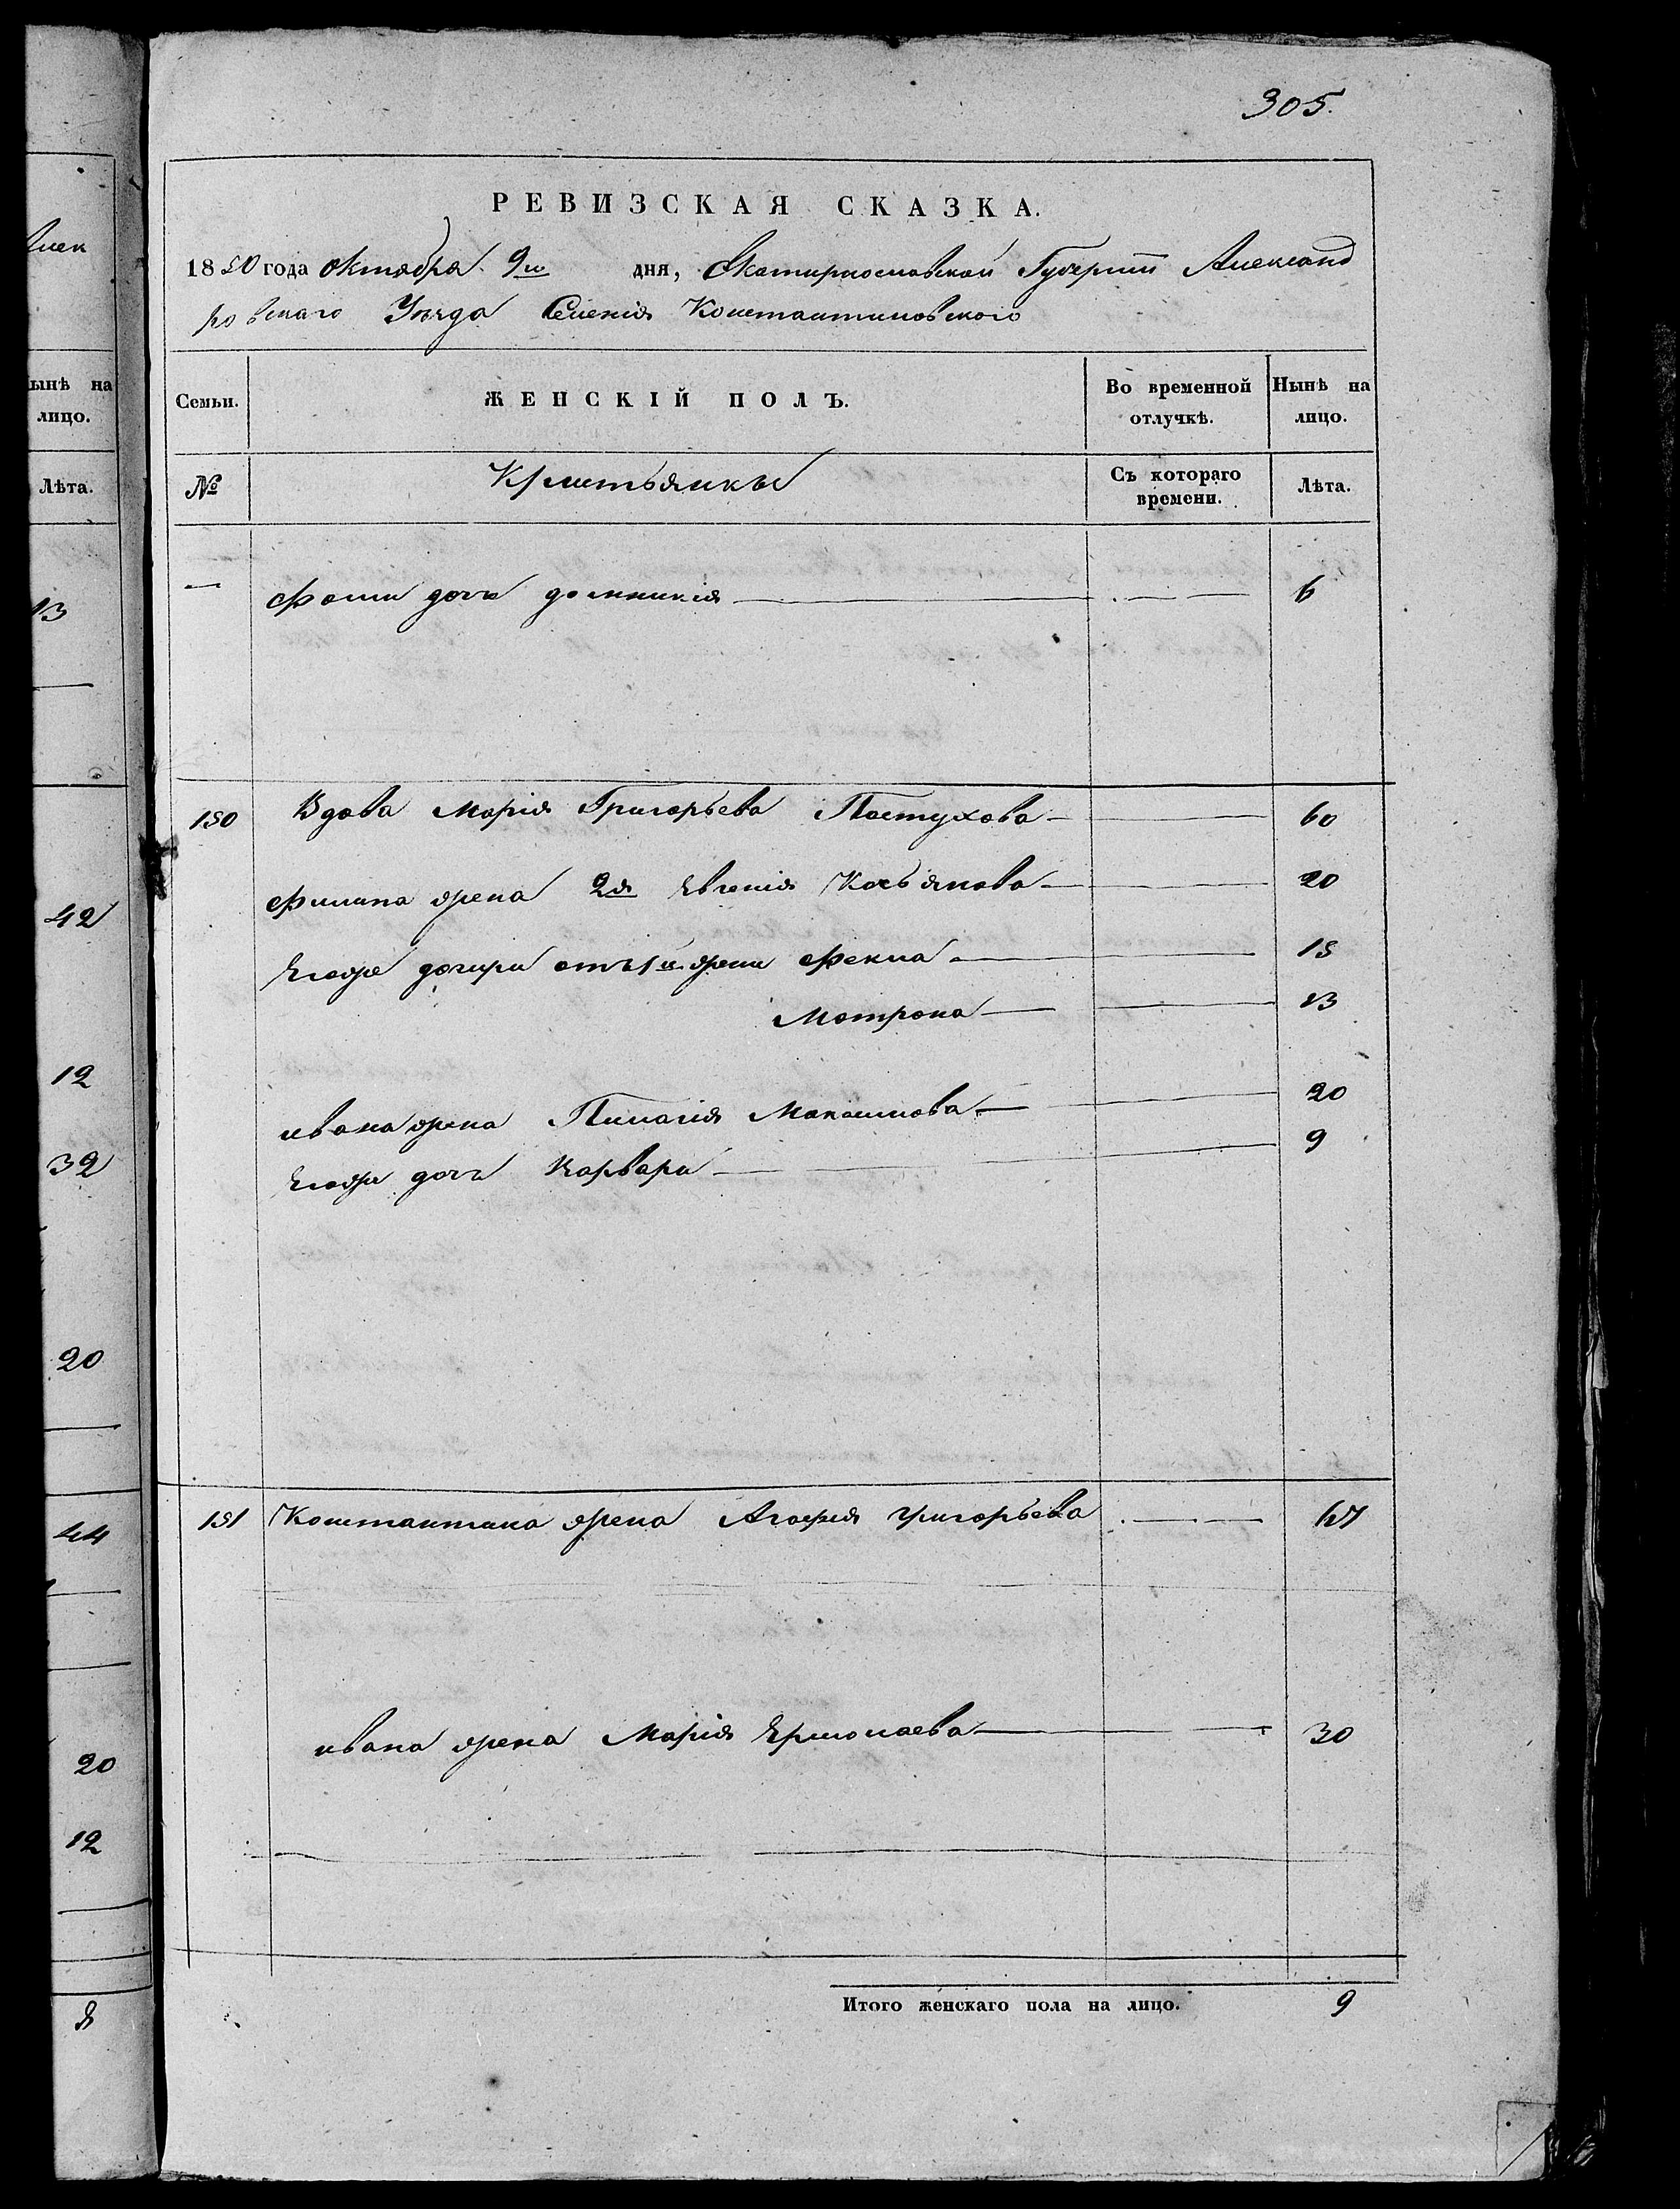 305.
РЕВИЗСКАЯ СКАЗКА.
1850 года октября 9го дня, Екатиринославской Губернии Александ
ровскаго Уезда Селенія Константиновского
Семьи. ЖЕНСКІЙ ПОЛЪ. Во временной отлучкѣ. Нынѣ на лицо.
№ Крестьянкы Съ котораго времени. Лѣта.
— Фомы дочь домникія — 6
150 Вдова Марія Григорьева Пастухова — 60
Филипа жена 2я Евгенія Касьянова — 20
Егоже дочери отъ 1й жены Фекла — 15
Мотрона — 13
ивана жена Пилагія Максимова — 20
Егоже дочь Варвара — 9
151 Константина жена Агафія григорьева — 67
ивана жена Марія Ермолаева — 30
Итого женскаго пола на лицо. 9
ынѣ на
лицо.
Лѣта.
13
42
12
32
20
44
20
12
8